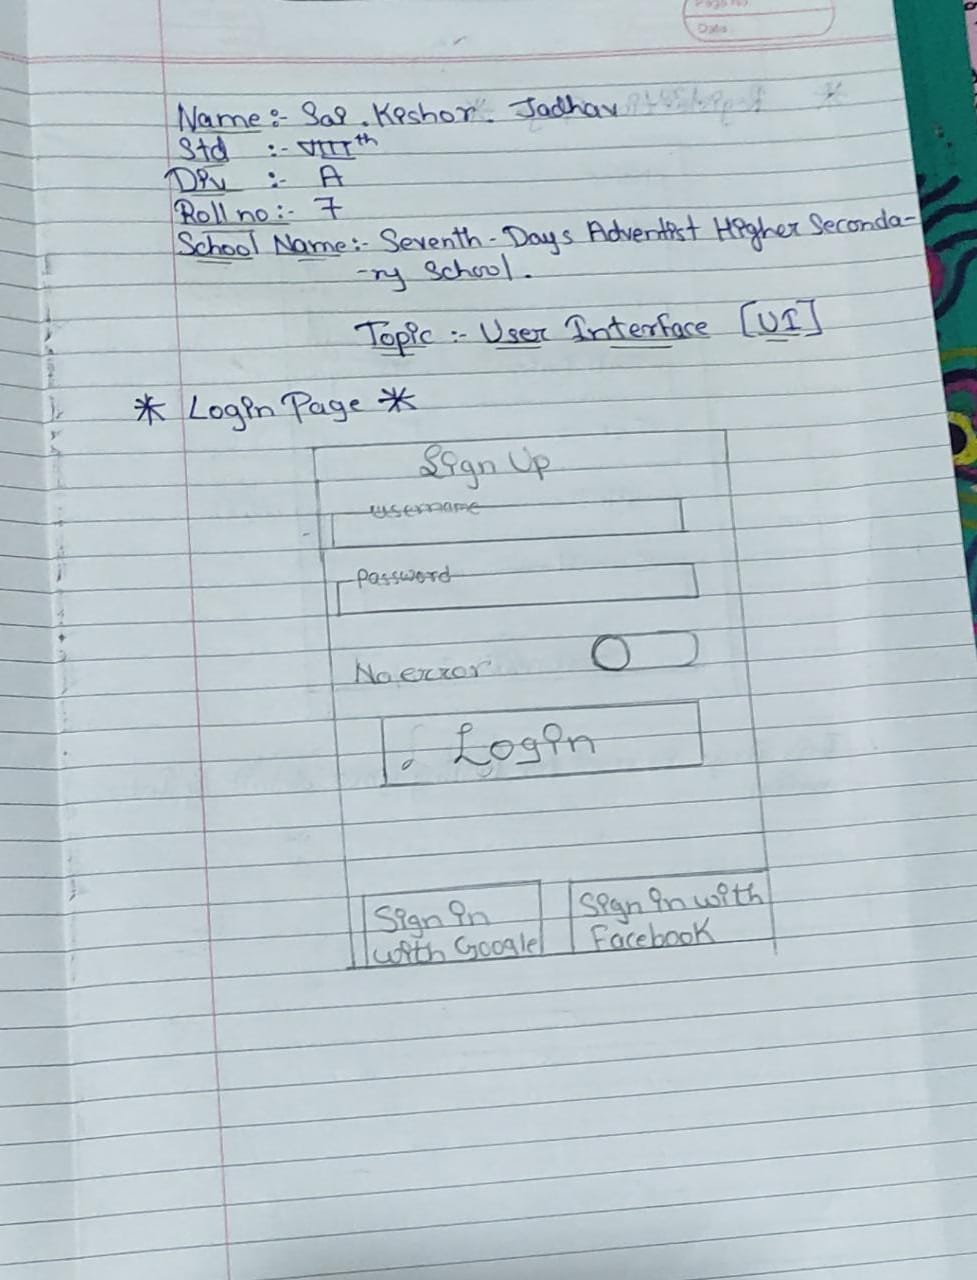 Page No.
Date
Name:- Sai. Kishor. Jadhav
Std :- VIIIth
Div :- A
Roll no:- 7
School Name:- Seventh-Days Adventist Higher Seconda-
-ry School.
Topic :- User Interface [UI]
* Login Page *
Sign Up
username
password
No error
Login
Sign in
with Google
Sign in with
Facebook